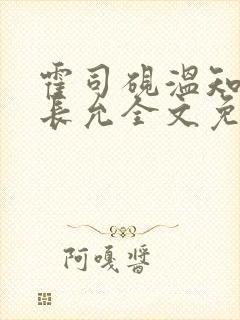 霍司砚温知
长允全文免
阿嘎酱